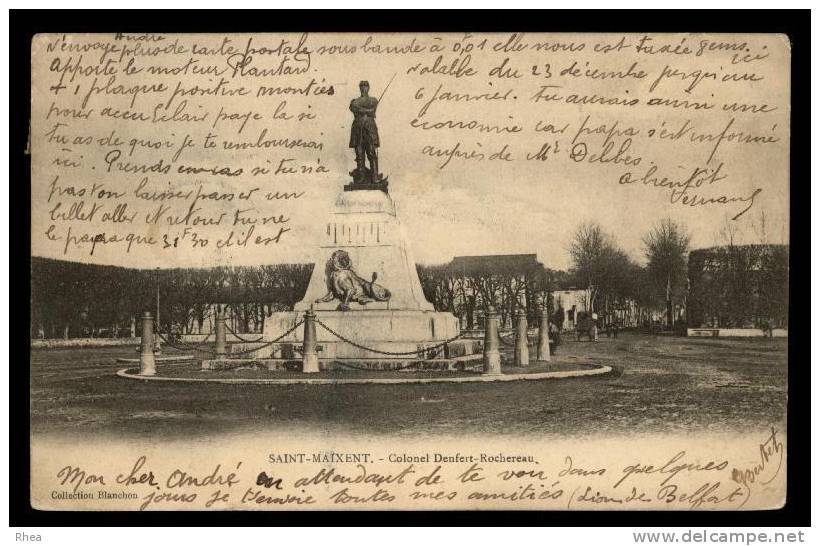 André
N'envoye plus de carte postale sous bande à 0,01 elle nous est taxée
Apporte le moteur Plantard.
+ 1 plaque positive montées
pour accu Eclair paye la si
tu as de quoi je te rembourserai
ici. Prends en cas si tu n'a
pas ton laisser passer un
billet aller et retour tu ne
le paye que 31F30 et il est
ici
valable du 23 décembre jusqu'au
6 janvier. Tu aurais aussi une
économie car papa s'est informé
auprès de Mr Delbes
a bientôt
Fernand
SAINT-MAIXENT. - Colonel Denfert-Rochereau
Mon cher André en attendant de te voir dans quelques
Collection Blanchon
jours je t'envoie toutes mes amitiés (Lion de Belfort)
Rhea
www.delcampe.net